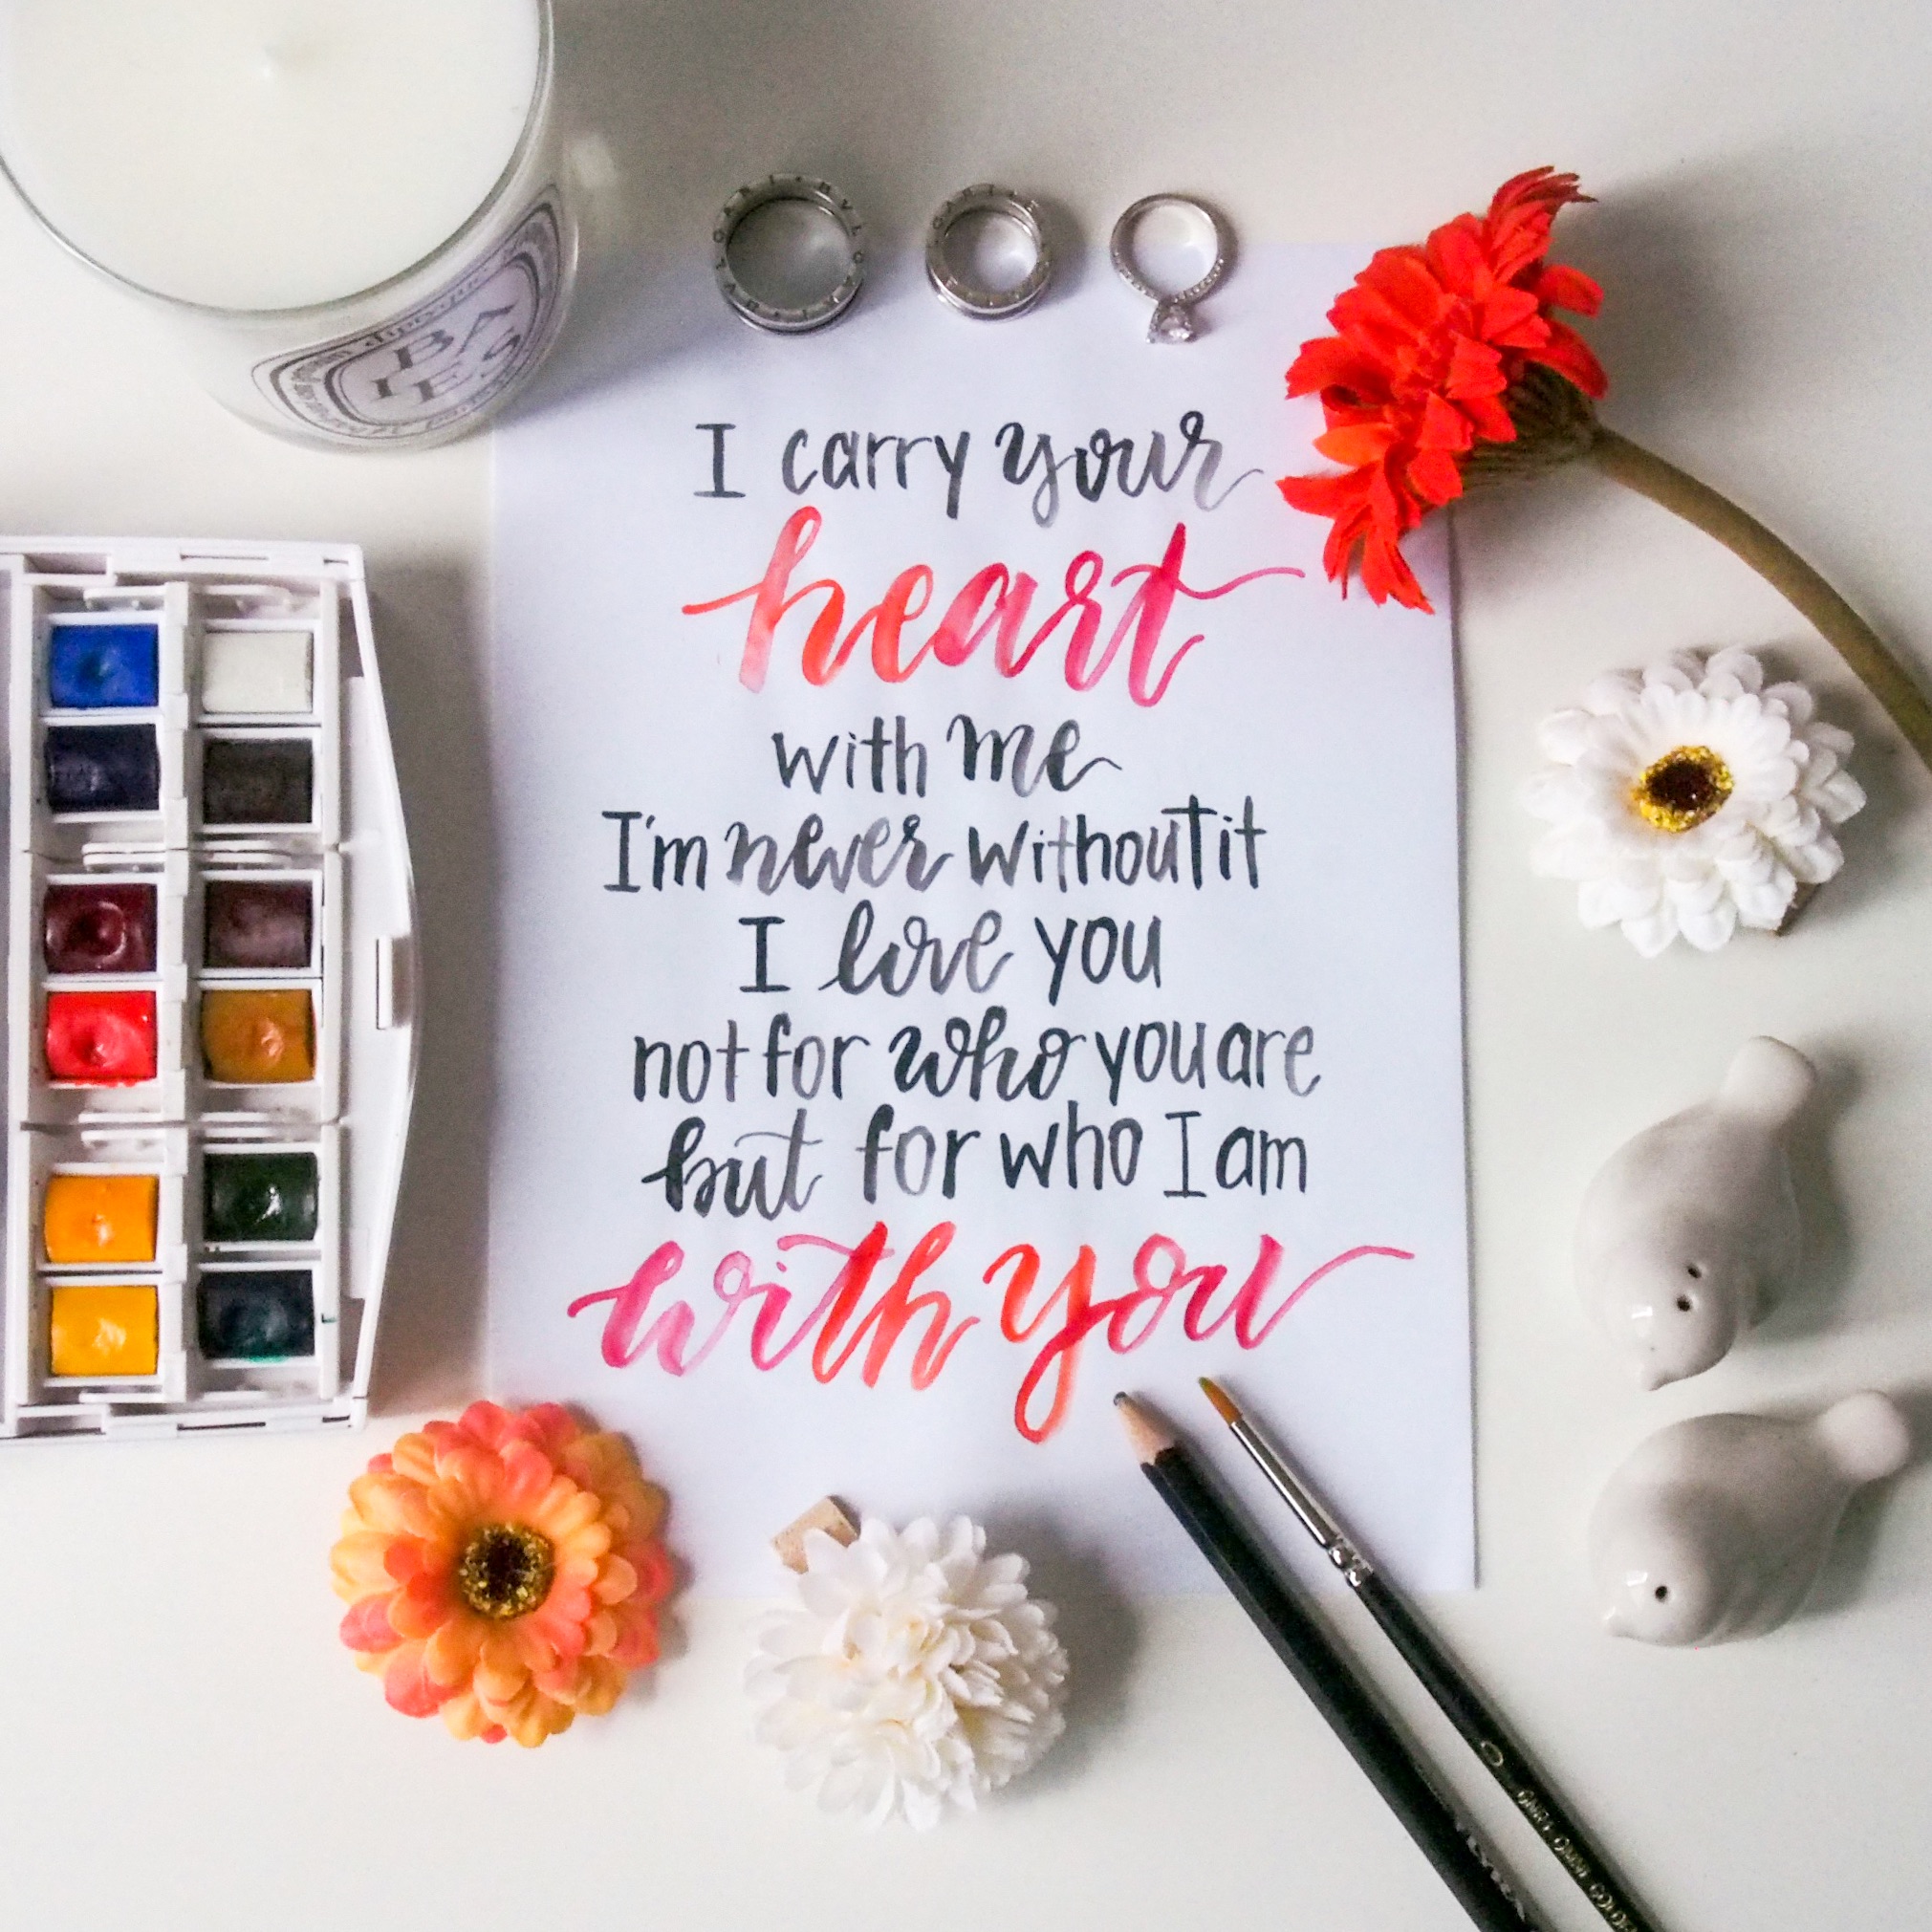 BA
IES
I carry your
heart
with me
I'm never without it
I love you
not for who you are
but for who I am
with you